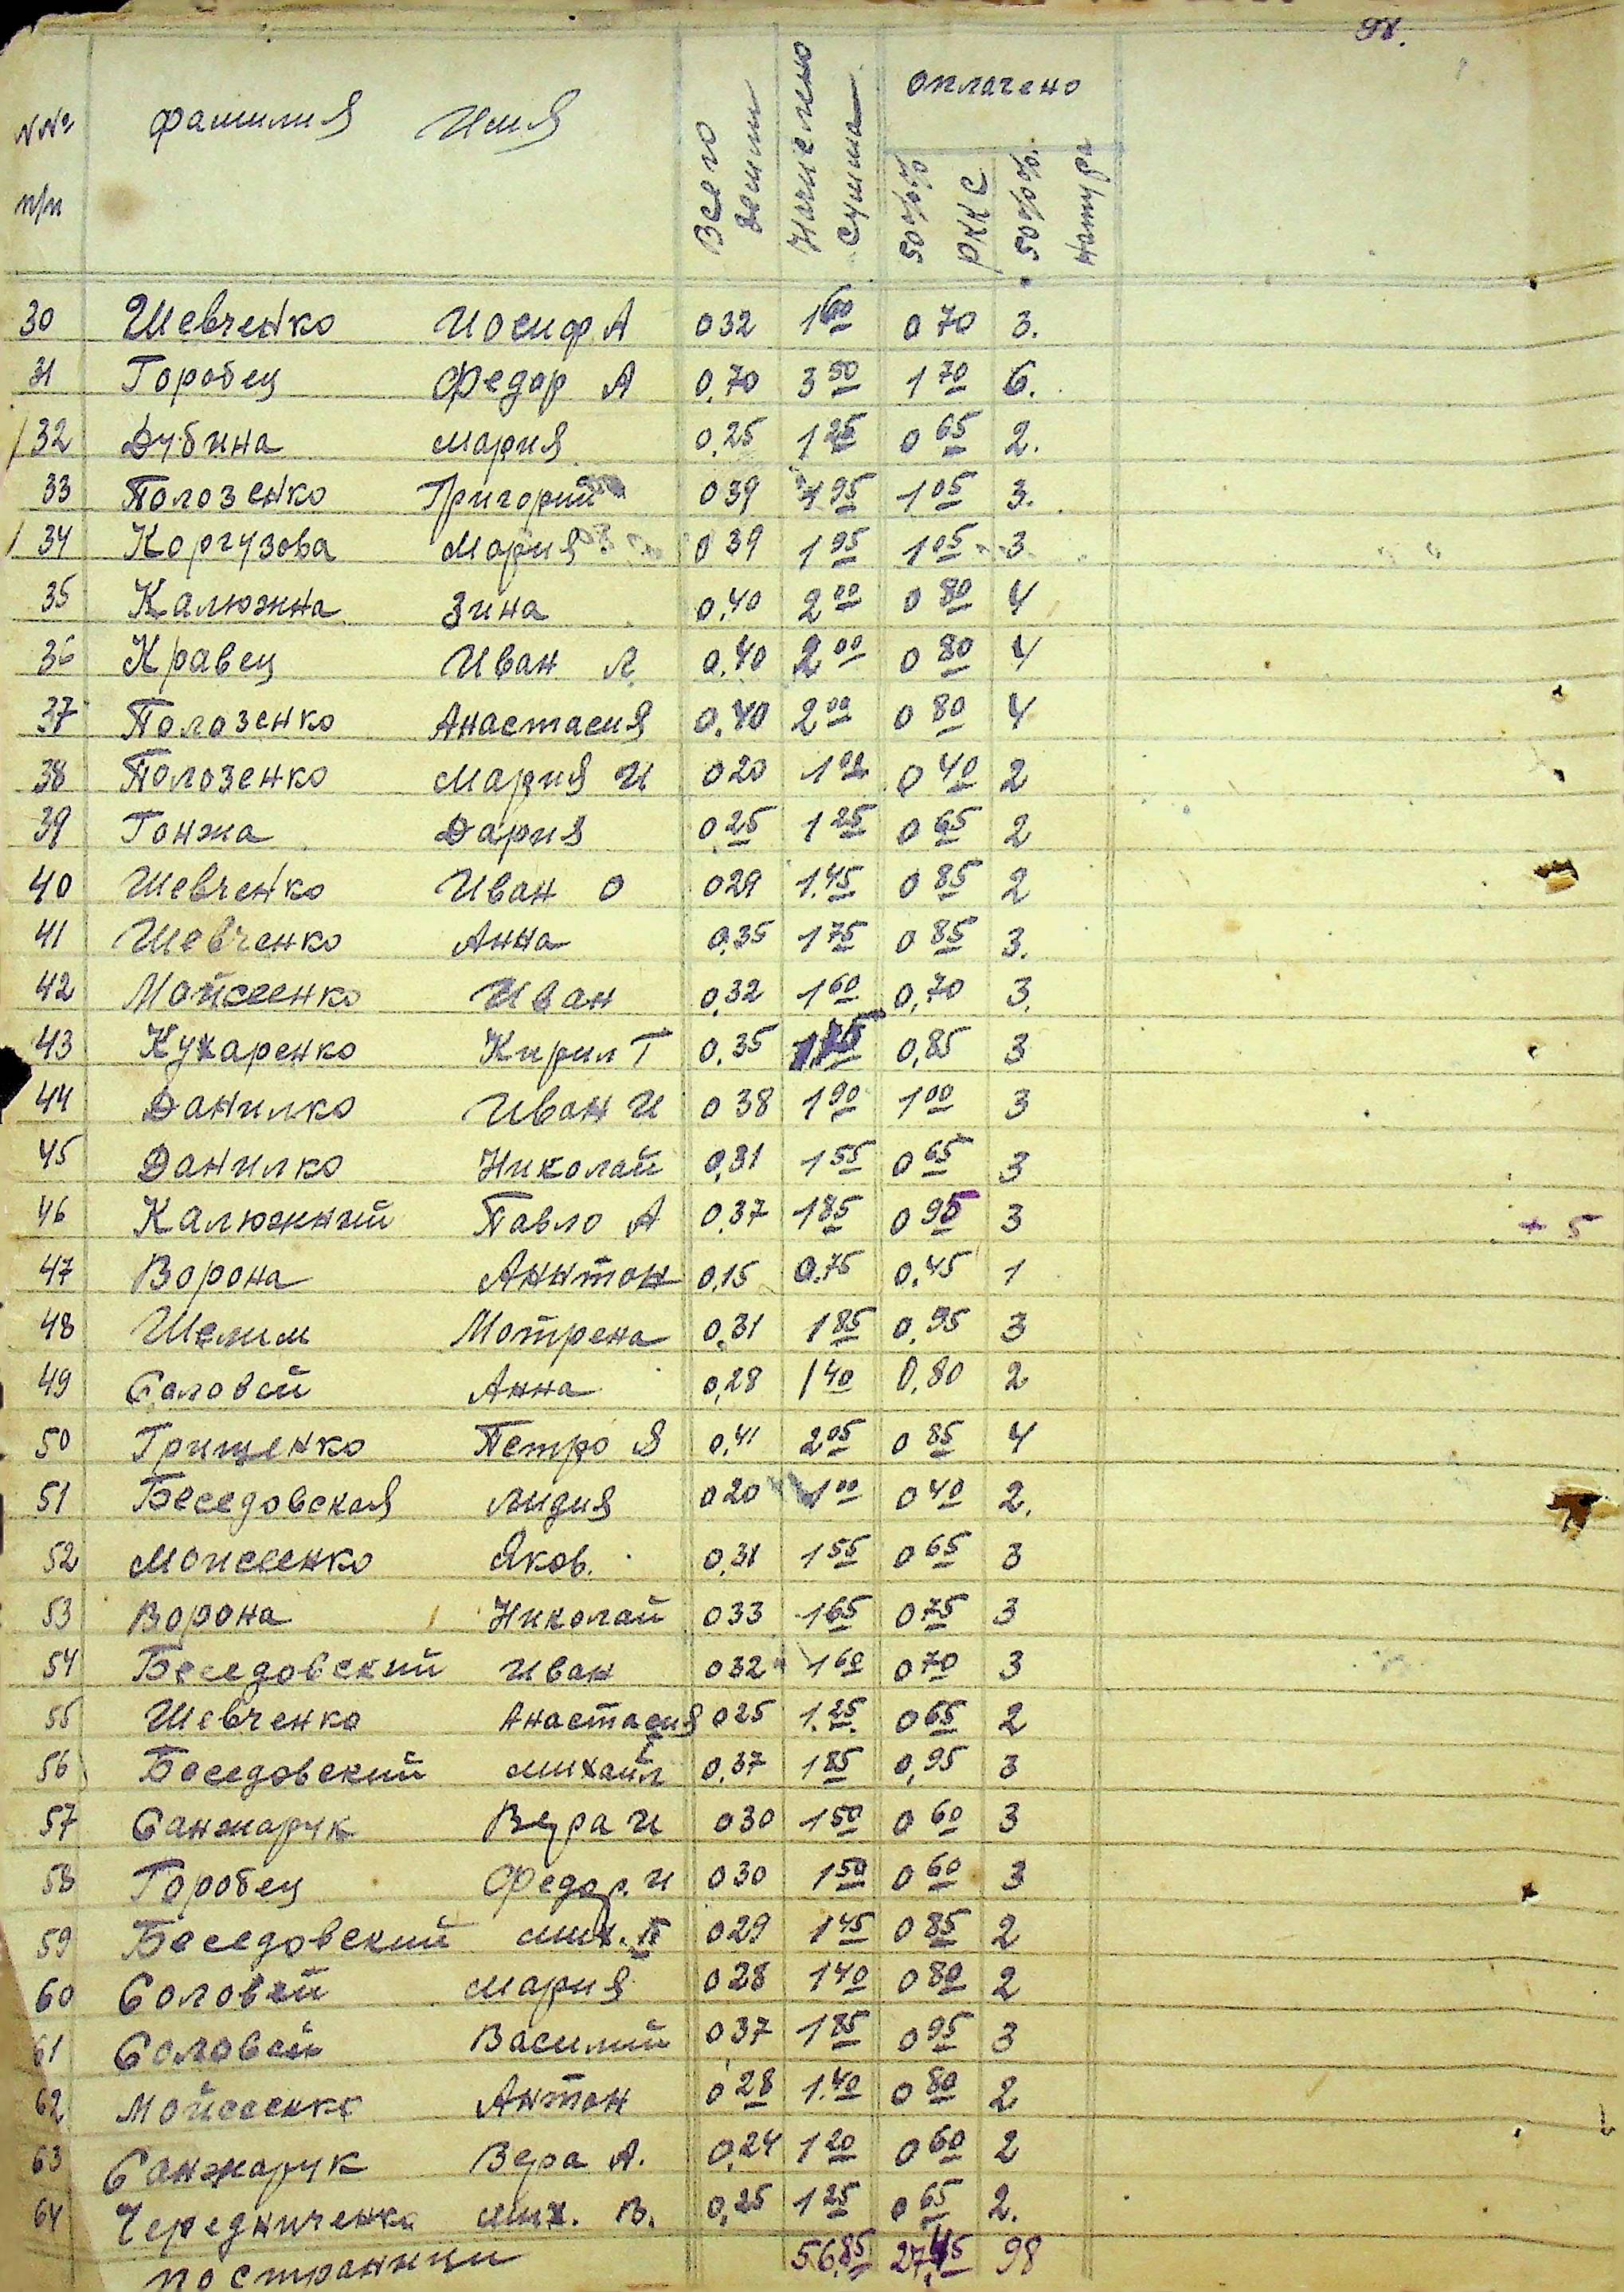 98.
NNº п/п фамилия Имя Всего земли Начислено сумма оплачено
50%% РККС 50%% натура
30 Шевченко Иосиф А 032 1 60 0 70 3.
31 Горобец Федор А 0.70 3 50 1 70 6.
32 Дубина Мария 0.25 1 25 0 65 2.
33 Полозенко Григорий 039 1 95 1 05 3.
34 Коргузова Мария 0 39 1 95 1 05 3
35 Калюжна Зина 0.40 2 00 0 80 4
36 Кравец Иван Л 0.40 2 00 0 80 4
37 Полозенко Анастасия 0.40 2 00 0 80 4
38 Полозенко Мария И 020 1 00 0 40 2
39 Гонжа Дария 0.25 1 25 0 65 2
40 Шевченко Иван О 029 1.45 0 85 2
41 Шевченко Анна 0.35 1 75 0 85 3.
42 Мойсеенко Иван 0.32 1 60 0.70 3.
43 Кухаренко Кирил Т 0.35 1.75 0.85 3
44 Данилко Иван И 0 38 1 90 1 00 3
45 Данилко Николай 0.31 1 55 0 65 3
46 Калюжний Павло А 0.37 1 85 0 95 3 + 5
47 Ворона Антон 0.15 0.75 0.45 1
48 Шелим Мотрена 0.31 1 85 0.95 3
49 Соловей Анна 0.28 1 40 0.80 2
50 Грищенко Петро Я 0.41 2 05 0 85 4
51 Беседовская Лидия 020 1 00 0 40 2.
52 Моисеенко Яков. 0.31 1 55 0 65 3
53 Ворона Николай 033 1 65 0 75 3
54 Беседовский Иван 032 1 60 0 70 3
55 Шевченко Анастасия 025 1.25. 0 65 2
56 Беседовский Михайл 0.37 1 85 0.95 3
57 Санжарук Вера И 030 1 50 0 60 3
58 Горобец Федор. И 030 1 50 0 60 3
59 Беседовский Мих. П 029 1 45 0 85 2
60 Соловей Мария 028 1 40 0 80 2
61 Соловей Василий 037 1 85 0 95 3
62 Мойсеенко Антон 0 28 1.40 0 80 2
63 Санжарук Вера А. 0.24 1 20 0 60 2
64 Чередниченко Мих. В. 0.25 1 25 0 65 2.
по страници 56.85 27.45 98